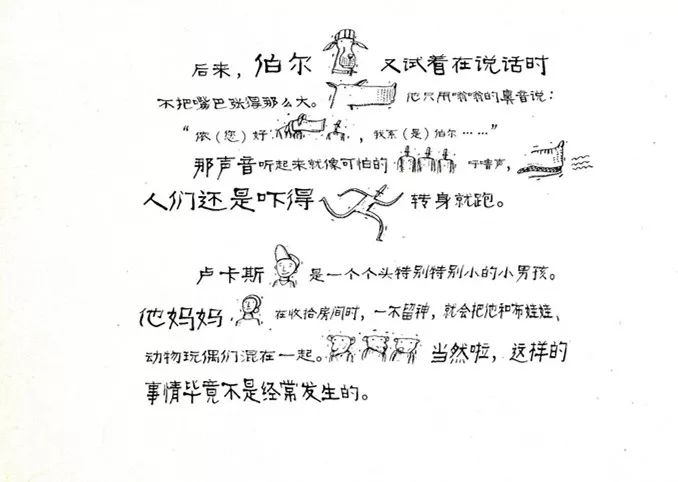 后来，伯尔 又试着在说话时
不把嘴巴张得那么大。 他只用嗡嗡的鼻音说：
“侬（您）好 ，我系（是）伯尔……”
那声音听起来就像可怕的 声，
人们还是吓得 转身就跑。
卢卡斯 是一个个头特别特别小的小男孩。
他妈妈 在收拾房间时，一不留神，就会把他和布娃娃、
动物玩偶们混在一起。 当然啦，这样的
事情毕竟不是经常发生的。